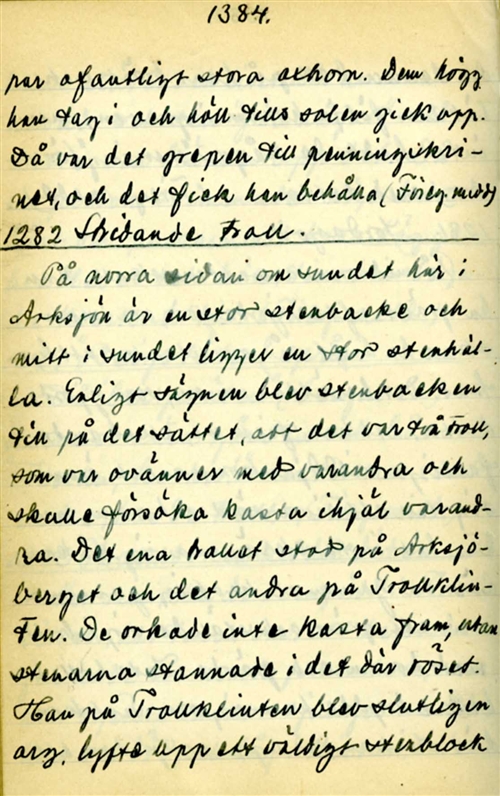 1384.
par ofantligt stora oxhorn. Dem högg
han tag i och höll tills solen gick upp.
Då var det grepen till penningskri-
net, och det fick han behålla (Föreg. medd)
1282 Stridande troll.
På norra sidan om sundet här i
Arksjön är en stor stenbacke och
mitt i sundet ligger en stor stenhäl-
la. Enligt sägnen blev stenbacken
till på det sättet, att det var två troll,
som var ovänner med varandra och
skulle försöka kasta ihjäl varand-
ra. Det ena trollet stod på Arksjö-
berget och det andra på Trollklin-
ten. De orkade inte kasta fram, utan
stenarna stannade i det där röset.
Han på Trollklinten blev slutligen
arg, lyfte upp ett väldigt stenblock